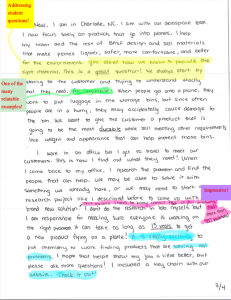 Addressing
student
questions!
Now, I am in Charlotte, NC. I am with our aerospace team.
I now focus solely on products that go into planes. I help
my team and the rest of BASF design and sell materials
that make planes lighter, safer, more comfortable, and safer
for the environment. You asked how we know to provide the
right materials. This is a great question! We always start by
talking to the customer and trying to understand exactly
what they need. For example: When people go onto a plane, they
One of the
many
relatable
examples!
come to put luggage in the storage bins, but since often
people are in a hurry, they may accidentally cause damage to
the bin. We want to give the customer a product that is
going to be the most durable while still meeting other requirements
like weight and appearance that can help prevent those bins.
I work in an office but I get to travel to meet our
customers. This is how I find out what they need! When
I come back to my office, I research the problem and find the
people that can help. We may be able to solve it with
something we already have, or we may need to start
research project like I described before to come up with
Impressive!
brand new solution! I don't do the research on my own itself but
I am responsible for making sure everyone is working on
the right answer. It can take as long as 10 years to get
a new product flying on a plane!
to put chemistry to work finding products that are solving real
problems. I hope that helps show my job a little better, but
please ask more questions! I included a key chain with our
website. Check it out!
3/4